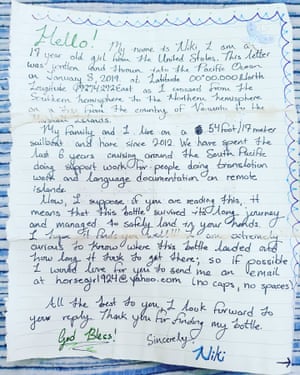 Hello! My name is Niki, I am a
19 year old girl from the United States. This letter
was written and thrown into the Pacific Ocean
on January 8, 2019. at Latitude 00°00.000North
Longitude East as I crossed from the
Southern hemisphere to the Northern hemisphere
on a trip from the country of Vanuatu to the
Islands.
My family and I live on a 54foot/17meter
sailboat and have since 2012. We have spent the
last 6 years cruising around the South Pacific
doing support work for people doing translation
work and language documentation on remote
islands.
Now, I suppose if you are reading this, it
means that this bottle survived its long journey
and managed to safely land in your hands.
I hope it finds you well!!! I am extremely
curious to know where this bottle landed and
how long it took to get there; so if possible
I would love for you to send me an email
at horsegirl924@yahoo.com (no caps, no spaces)
All the best to you, I look forward to
your reply. Thank you for finding my bottle.
God Bless! Sincerely,
Niki